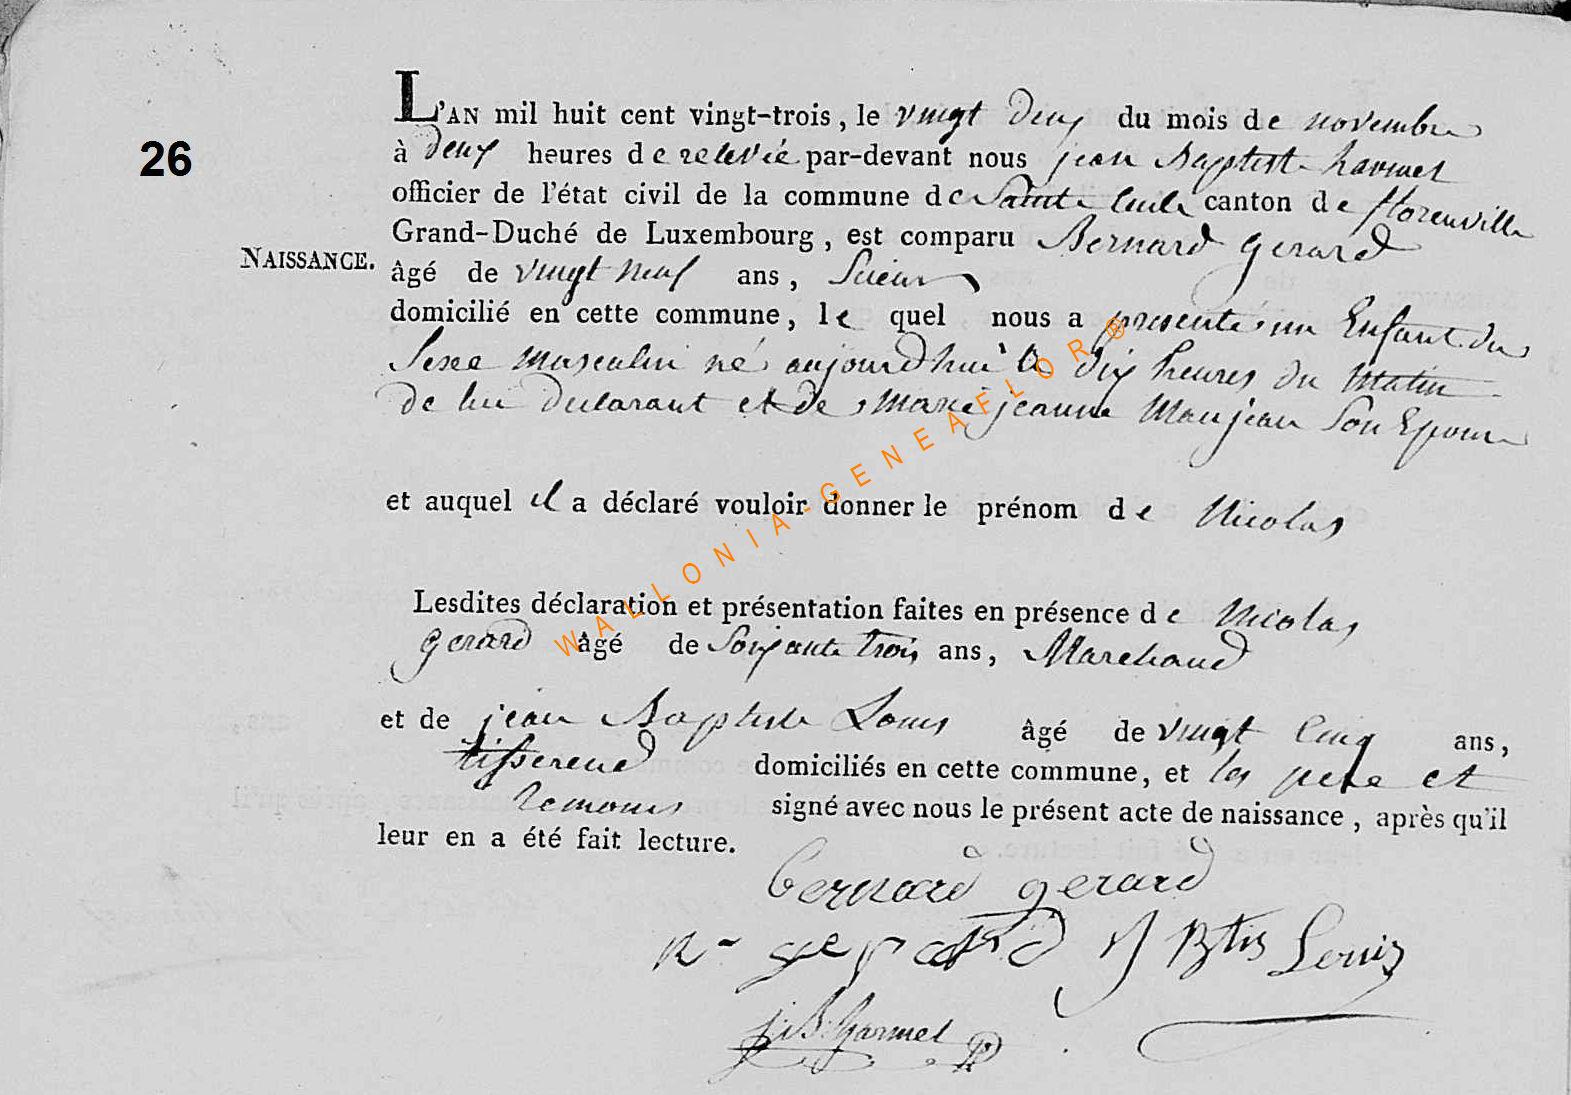 26
NAISSANCE.
L'AN mil huit cent vingt-trois, le vingt deux du mois de novembre
à deux heures de relevée par-devant nous jean Baptiste harmel
officier de l'état civil de la commune de Sainte Cecile canton de florenville
Grand-Duché de Luxembourg, est comparu Bernard gerard
âgé de vingt neuf ans, Scieur
domicilié en cette commune, le quel nous a presenté un Enfant du
Sexe masculin né aujourdhui a dix heures du matin
de lui declarant et de marie jeanne Maujean Son Epouse
et auquel il a déclaré vouloir donner le prénom de Nicolas
Lesdites déclaration et présentation faites en présence de Nicolas
gerard âgé de Soixante trois ans, Marchand
et de jean Baptiste Louis âgé de vingt Cinq ans,
tisserend domiciliés en cette commune, et les pere et
temoins signé avec nous le présent acte de naissance, après qu'il
leur en a été fait lecture.
bernard gerard
n gerard J Btis Louis
j:B:harmel
WALLONIA-GENEAFLOR®